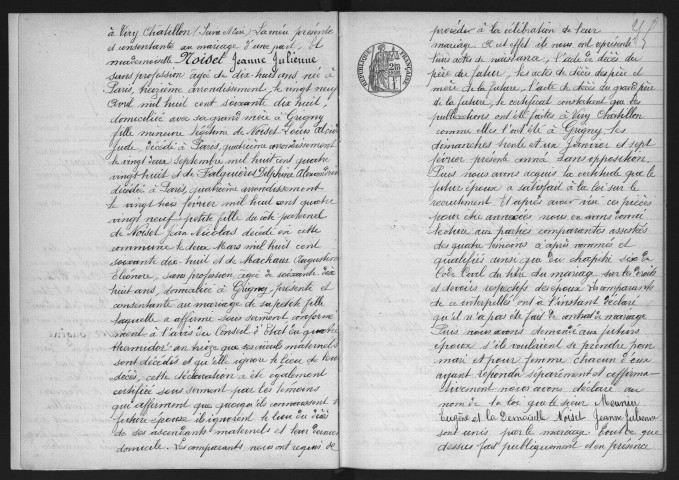 à Viry Chatillon (Seine & Oise) La mère présente
et consentante au mariage d'une part, Et
mademoiselle Noiset Jeanne Julienne
sans profession âgée de dix huit ans née à
Paris, treizième arrondissement, le vingt neuf
Avril mil huit cent soixante dix huit,
domiciliée avec sa grand mère à Grigny
fille mineure légitime de Noiset Louis
Jude, décédé à Paris, quatrième arrondissement
le vingt deux Septembre mil huit cent quatre
vingt huit et de Falguières Delphine Alexandrine
décédée à Paris, quatrième arrondissement
le vingt trois février mil huit cent quatre
vingt neuf petite fille du côté paternel
de Noiset Jean Nicolas décédé en cette
commune le deux Mars mil huit cent
soixante dix huit et de Machaux Augustine
Eléonore, sans profession âgée de soixante dix
huit ans, domiciliée à Grigny, présente et
consentante au mariage de sa petite fille
laquelle a affirmé sous serment conformé
ment à l'avis du Conseil d'Etat du quatre
thermidor an treize que ses aïeuls maternels
sont décédés et qu'elle ignore le lieu de leur
décès, cette déclaration a été également
certifiée sous serment par les témoins
qui affirment que quoiqu'ils connaissent la
future épouse ils ignorent le lieu du décès
de ses ascendants maternels et leur dernier
domicile. Les comparants nous ont requis de
procéder à la célébration de leur
mariage. A cet effet ils nous ont représenté
leurs actes de naissance, l'acte de décès du
père du futur, les actes de décès des père et
mère de la future, l'acte de décès du grand père
de la future, le certificat constatant que les
publications ont été faites à Viry Chatillon
comme elles l'ont été à Grigny, les
dimanches trente et un Janvier et sept
février présent année sans opposition.
Puis nous avons acquis la certitude que le
futur époux a satisfait à la loi sur le
recrutement. Et après avoir visé ces pièces
pour être annexées nous en avons donné
lecture aux parties comparantes assistées
des quatre témoins ci après nommés et
qualifiés ainsi que du chapitre six du
Code Civil du titre du mariage sur les droits
et devoirs respectifs des époux. Les comparants
de ce interpellés ont à l'instant déclaré
qu'il n'a pas été fait de contrat de mariage
Puis nous avons demandé aux futurs
époux s'ils voulaient se prendre pour
mari et pour femme chacun d'eux
ayant répondu séparément et affirma
tivement nous avons déclaré au
nom de la loi que le sieur Meunier
Eugène et la Demoiselle Noiset Jeanne Julienne
sont unis par le mariage. Tout ce que
dessus fait publiquement et en présence
RÉPUBLIQUE FRANÇAISE